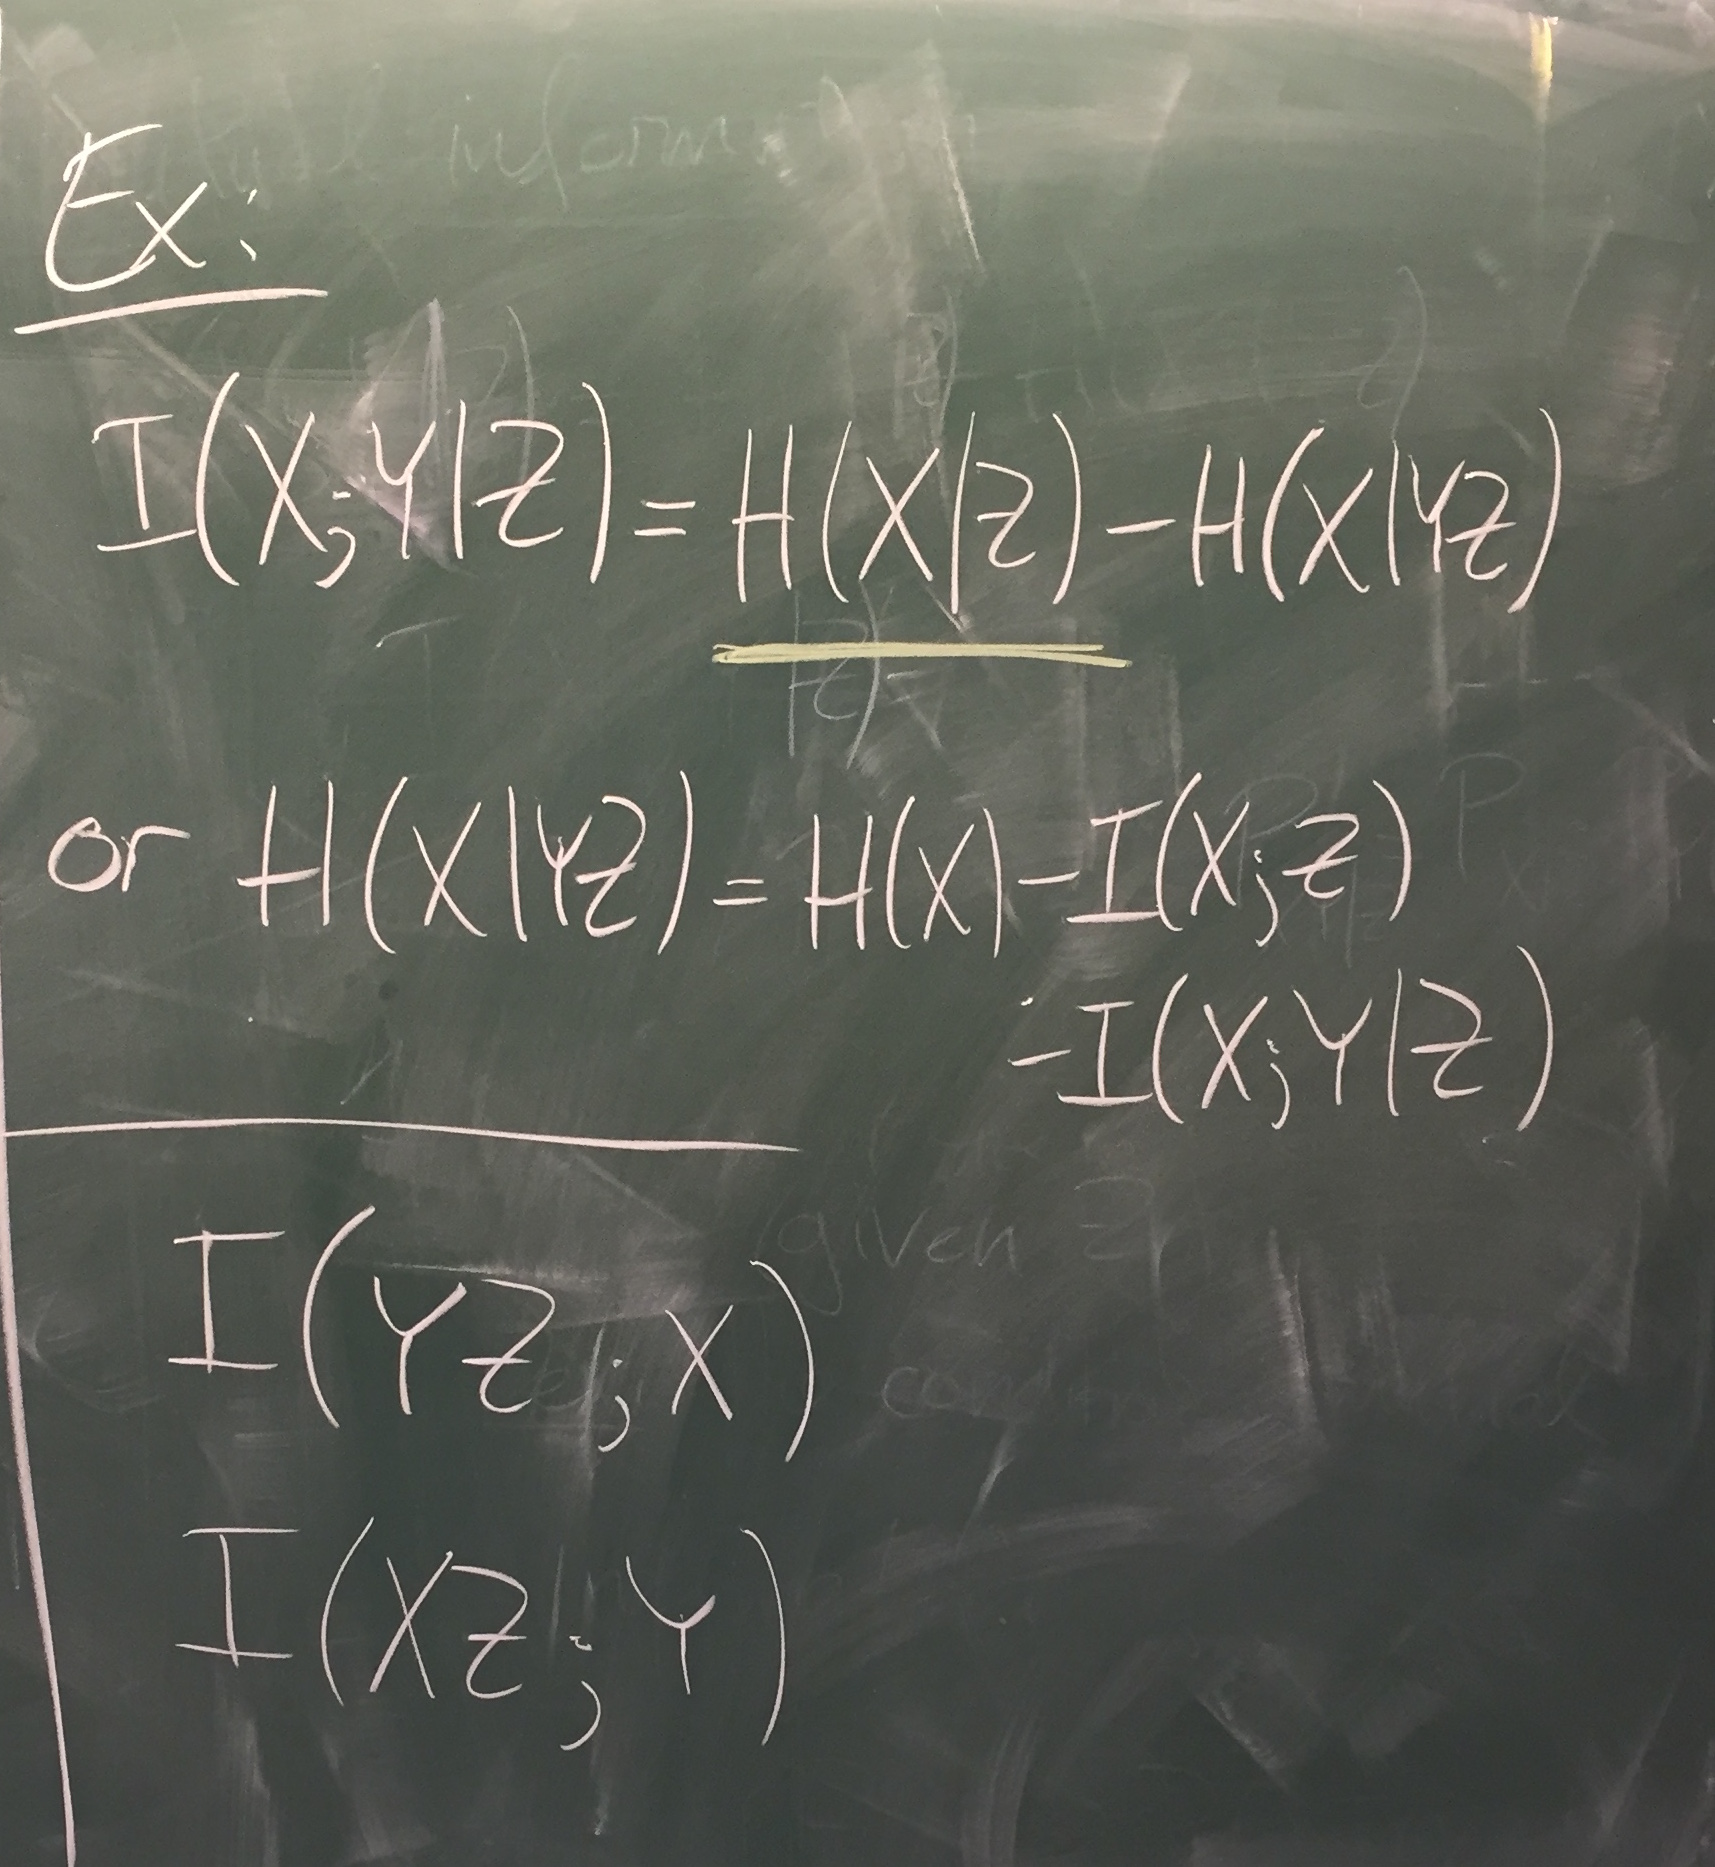 Ex:
I(X;Y|Z) = H(X|Z) - H(X|YZ)
or H(X|YZ) = H(X) - I(X;Z)
- I(X;Y|Z)
given
I(YZ;X)
I(XZ;Y)